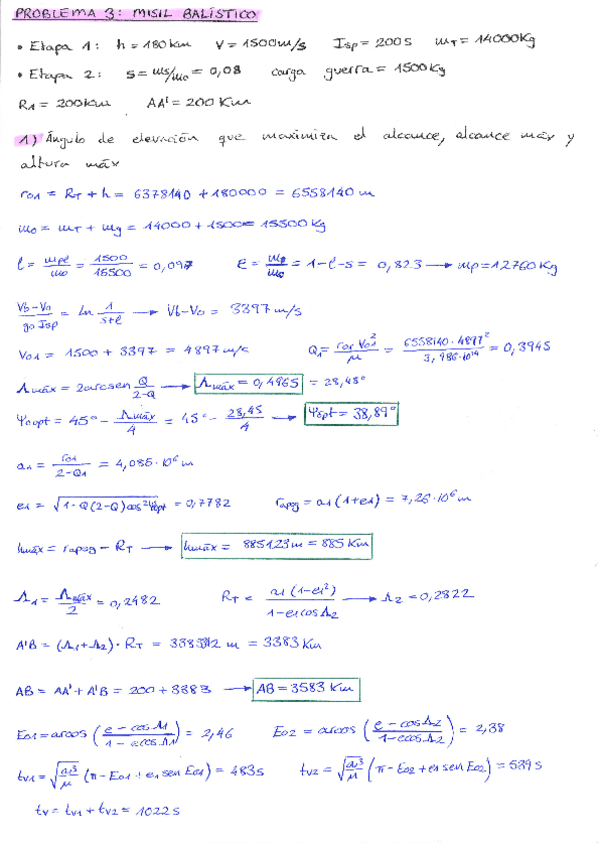 PROBLEMA 3: MISIL BALÍSTICO
• Etapa 1: h = 180 km V = 1500 m/s Isp = 200 s mT = 14000 kg
• Etapa 2: s = ms/mo = 0,08 carga guerra = 1500 kg
R1 = 200 km AA' = 200 km
1) Ángulo de elevación que maximiza el alcance, alcance máx y
altura máx
ro1 = RT + h = 6378140 + 180000 = 6558140 m
mo = mT + mg = 14000 + 1500 = 15500 kg
l = mpl/mo = 1500/15500 = 0,097 ε = mp/mo = 1 - l - s = 0,823 → mp = 12760 kg
(Vb - Vo)/(go Isp) = ln 1/(s+l) → Vb - Vo = 3397 m/s
Vo1 = 1500 + 3397 = 4897 m/s Q1 = ro1 Vo1²/μ = 6558140 · 4897²/3,986·10¹⁴ = 0,3945
Λmáx = 2 arcsen Q/(2-Q) → Λmáx = 0,4965 = 28,45°
φopt = 45° - Λmáx/4 = 45° - 28,45/4 → φopt = 38,89°
a1 = ro1/(2-Q1) = 4,085·10⁶ m
e1 = √(1 - Q(2-Q)cos²φopt) = 0,7782 rapog = a1(1+e1) = 7,26·10⁶ m
hmáx = rapog - RT → hmáx = 885123 m = 885 km
Λ1 = Λmáx/2 = 0,2482 RT = a1(1-e1²)/(1-e1 cosΛ2) → Λ2 = 0,2822
A'B = (Λ1+Λ2)·RT = m = 3383 km
AB = AA' + A'B = 200 + 3383 → AB = 3583 km
Eo1 = arcos ((e - cosΛ1)/(1 - e cosΛ1)) = 2,46 Eo2 = arcos ((e - cosΛ2)/(1 - e cosΛ2)) = 2,38
tv1 = √(a1³/μ) (π - Eo1 + e1 sen Eo1) = 483 s tv2 = √(a1³/μ) (π - Eo2 + e1 sen Eo2) = 539 s
tv = tv1 + tv2 = 1022 s